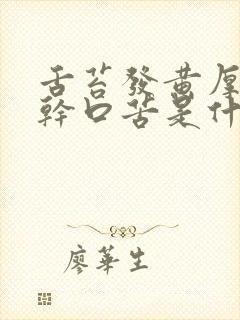 舌苔發黃厚
幹口苦是什
廖華生